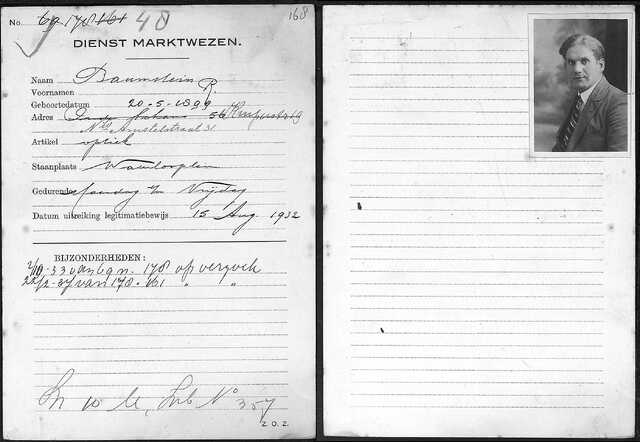 No. 69 178 161 48 168
DIENST MARKTWEZEN.
Naam Baumstein
Voornamen R.
Geboortedatum 20-5-1899
Adres 56
Nwe Amstelstraat 31
Artikel optiek
Staanplaats Waterlooplein
Gedurende Maandag t/m Vrijdag
Datum uitreiking legitimatiebewijs 15 Aug. 1932
BIJZONDERHEDEN:
2/10-33 van 69 n. 178 op verzoek
22/2-37 van 178-161 " "
No 357
Z.O.Z.